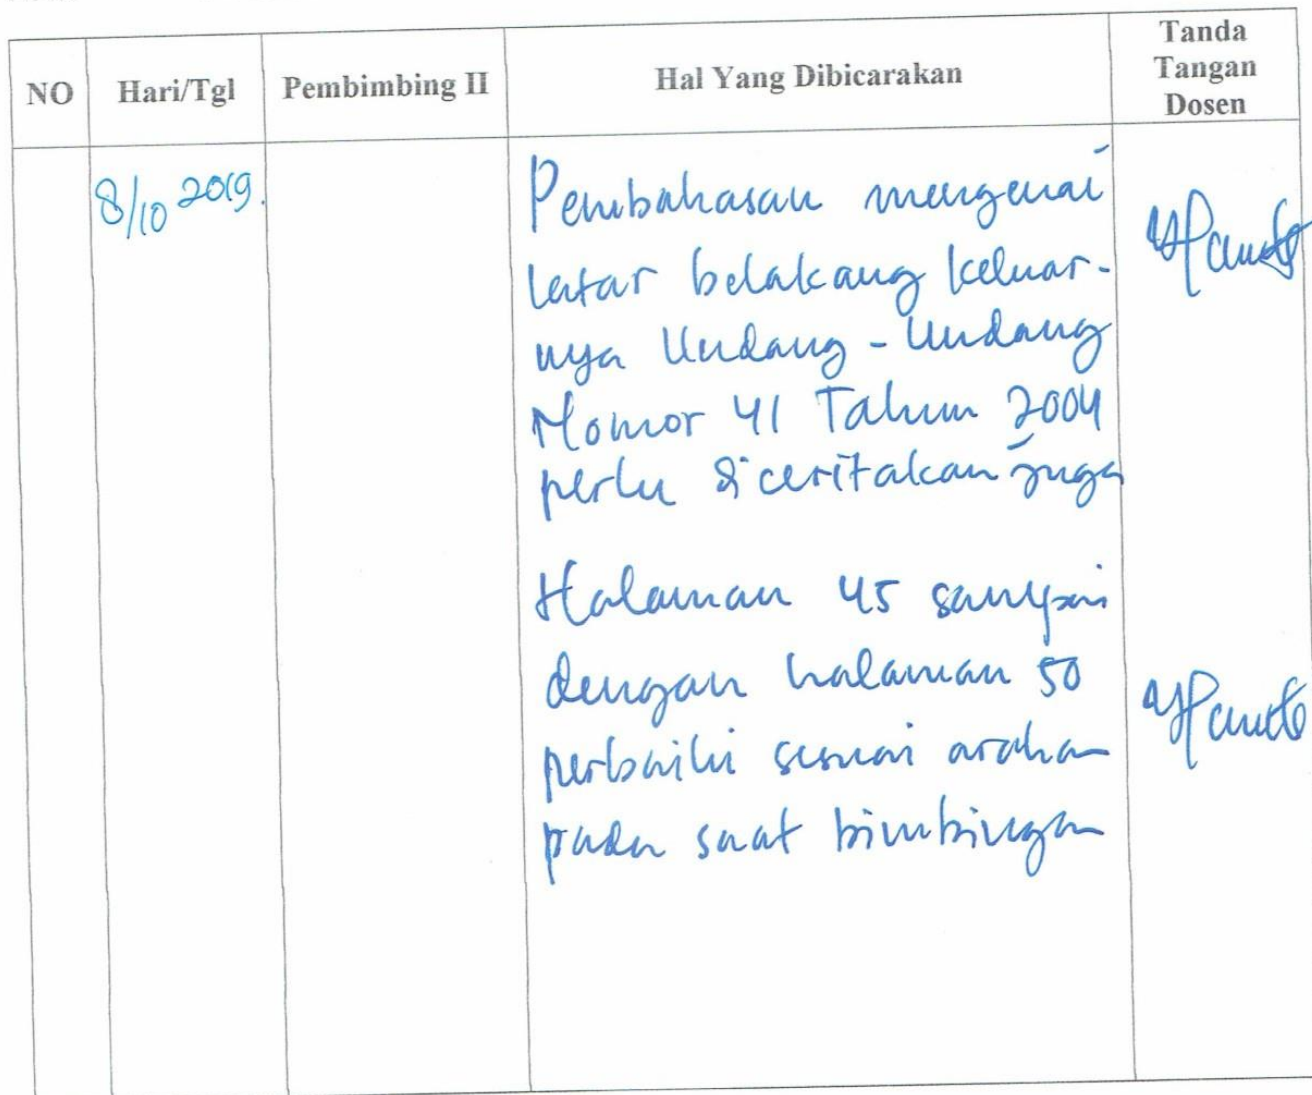 NO Hari/Tgl Pembimbing II Hal Yang Dibicarakan Tanda Tangan Dosen
8/10 2019.
Pembahasan mengenai
latar belakang keluar-
nya Undang - Undang
Nomor 41 Tahun 2004
perlu diceritakan juga
Halaman 45 sampai
dengan halaman 50
perbaiki sesuai arahan
pada saat bimbingan